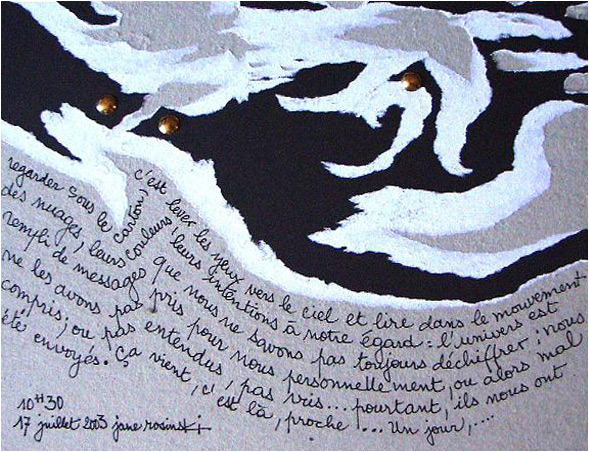 regarder sous le carton, c'est lever les yeux vers le ciel et lire dans le mouvement
des nuages, leurs couleurs, leurs intentions à notre égard : l'univers est
rempli de messages que nous ne savons pas toujours déchiffrer : nous
ne les avons pas pris pour nous personnellement, ou alors mal
compris, ou pas entendus, pas ... pourtant, ils nous ont
été envoyés. Ça vient, c'est là, proche ... Un jour,....
10H30
17 juillet 2003 jane rosinski